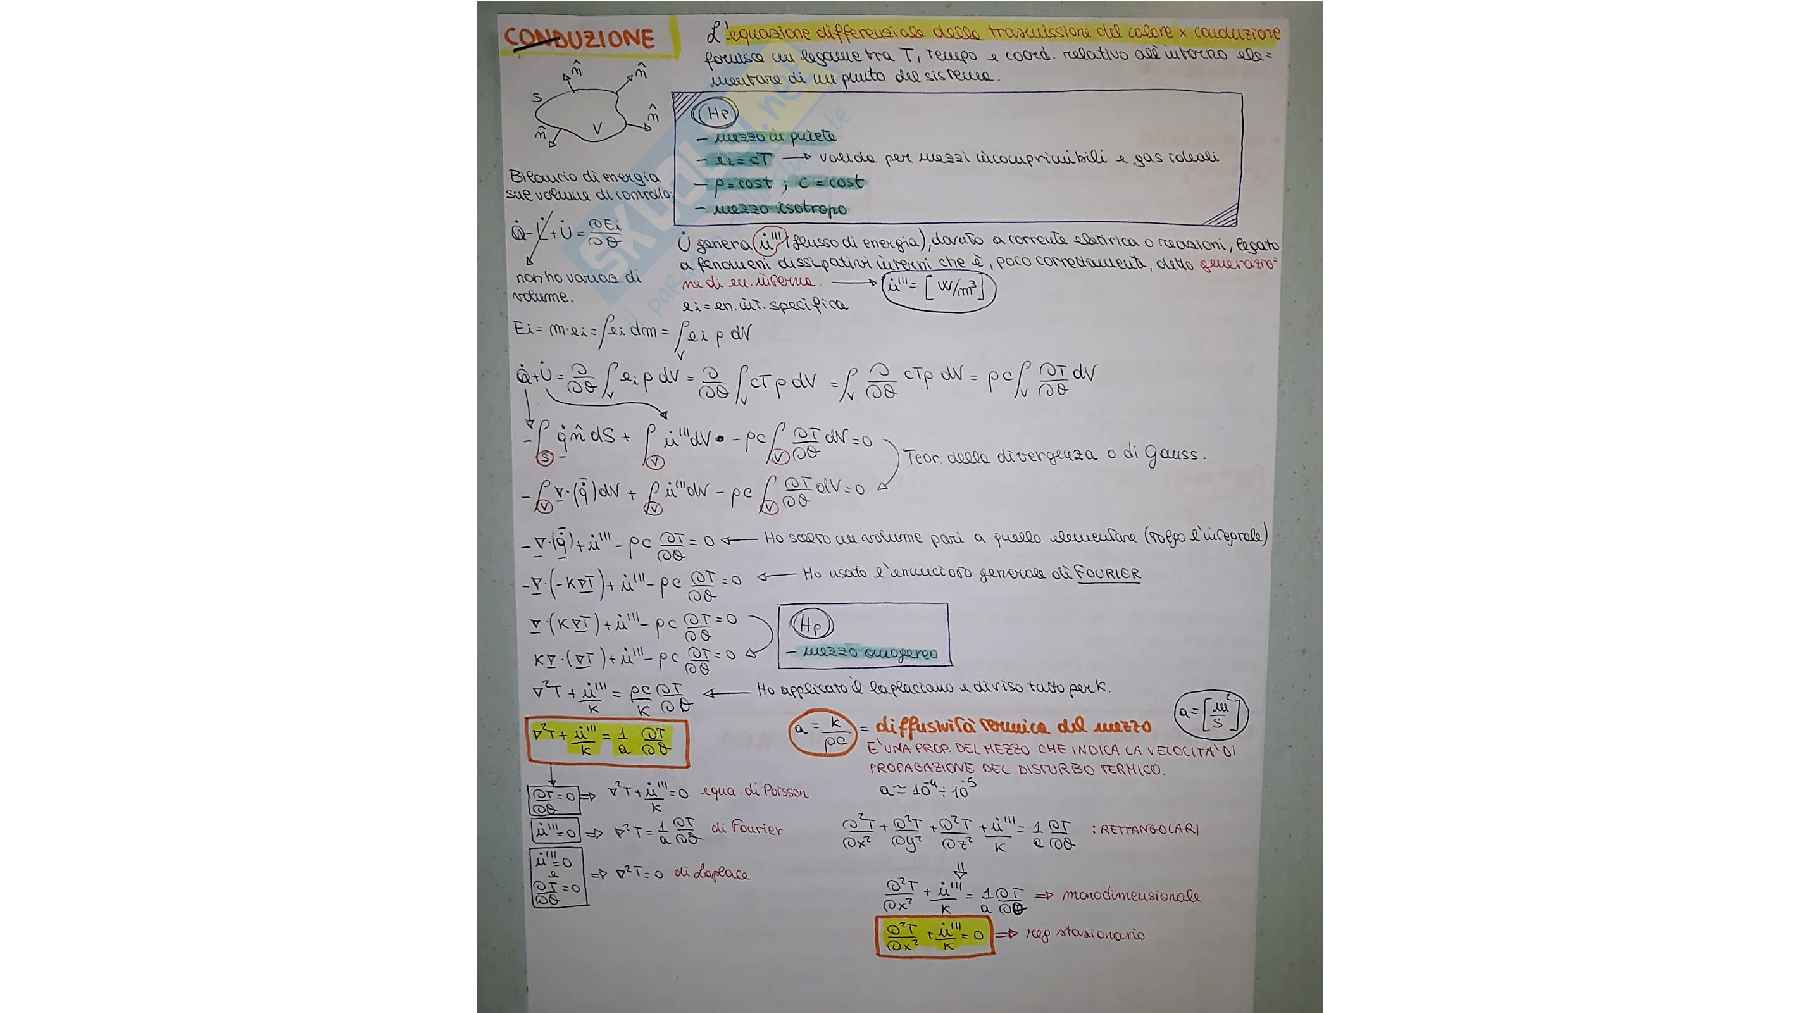 CONDUZIONE
L'equazione differenziale della trasmissione del calore x conduzione
fornisce un legame tra T, tempo e coord. relativo all'intorno ele=
mentare di un punto del sistema.
n̂ n̂ n̂ n̂
S V
Hp
- mezzo in quiete
- ei = cT → valida per mezzi incomprimibili e gas ideali
- ρ = cost ; c = cost
- mezzo isotropo
Bilancio di energia
sul volume di controllo:
Q̇ - L̇ + U̇ = ∂Ei/∂θ
non ho variaz. di
volume.
U̇ genera u̇''' (flusso di energia), dovuto a corrente elettrica o reazioni, legato
a fenomeni dissipativi interni che è, poco correttamente, detto generazio=
ne di en. interna. → u̇''' = [W/m³]
ei = en. int. specifica
Ei = m·ei = ∫ ei dm = ∫V ei ρ dV
Q̇ + U̇ = ∂/∂θ ∫V ei ρ dV = ∂/∂θ ∫V cTρ dV = ∫V ∂/∂θ cTρ dV = ρc ∫V ∂T/∂θ dV
-∫S q̇ n̂ dS + ∫V u̇''' dV - ρc ∫V ∂T/∂θ dV = 0
Teor. della divergenza o di Gauss.
-∫V ∇·(q̇) dV + ∫V u̇''' dV - ρc ∫V ∂T/∂θ dV = 0
-∇·(q̇) + u̇''' - ρc ∂T/∂θ = 0 ← Ho scelto un volume pari a quello elementare (tolgo l'integrale)
-∇·(-K∇T) + u̇''' - ρc ∂T/∂θ = 0 ← Ho usato l'enunciato generale di FOURIER
∇·(K∇T) + u̇''' - ρc ∂T/∂θ = 0
Hp
- mezzo omogeneo
K∇·(∇T) + u̇''' - ρc ∂T/∂θ = 0
∇²T + u̇'''/K = ρc/K ∂T/∂θ ← Ho applicato il laplaciano e diviso tutto per K.
∇²T + u̇'''/K = 1/a ∂T/∂θ
a = k/ρc = diffusività termica del mezzo
a = [m²/s]
E' UNA PROP. DEL MEZZO CHE INDICA LA VELOCITA' DI
PROPAGAZIONE DEL DISTURBO TERMICO.
a ≃ 10⁻⁴ ÷ 10⁻⁵
∂T/∂θ = 0 ⇒ ∇²T + u̇'''/K = 0 equa di Poisson
u̇''' = 0 ⇒ ∇²T = 1/a ∂T/∂θ di Fourier
u̇''' = 0
e
∂T/∂θ = 0
⇒ ∇²T = 0 di Laplace
∂²T/∂x² + ∂²T/∂y² + ∂²T/∂z² + u̇'''/K = 1/a ∂T/∂θ : RETTANGOLARI
∂²T/∂x² + u̇'''/K = 1/a ∂T/∂θ ⇒ monodimensionale
∂²T/∂x² + u̇'''/K = 0 ⇒ reg stazionario